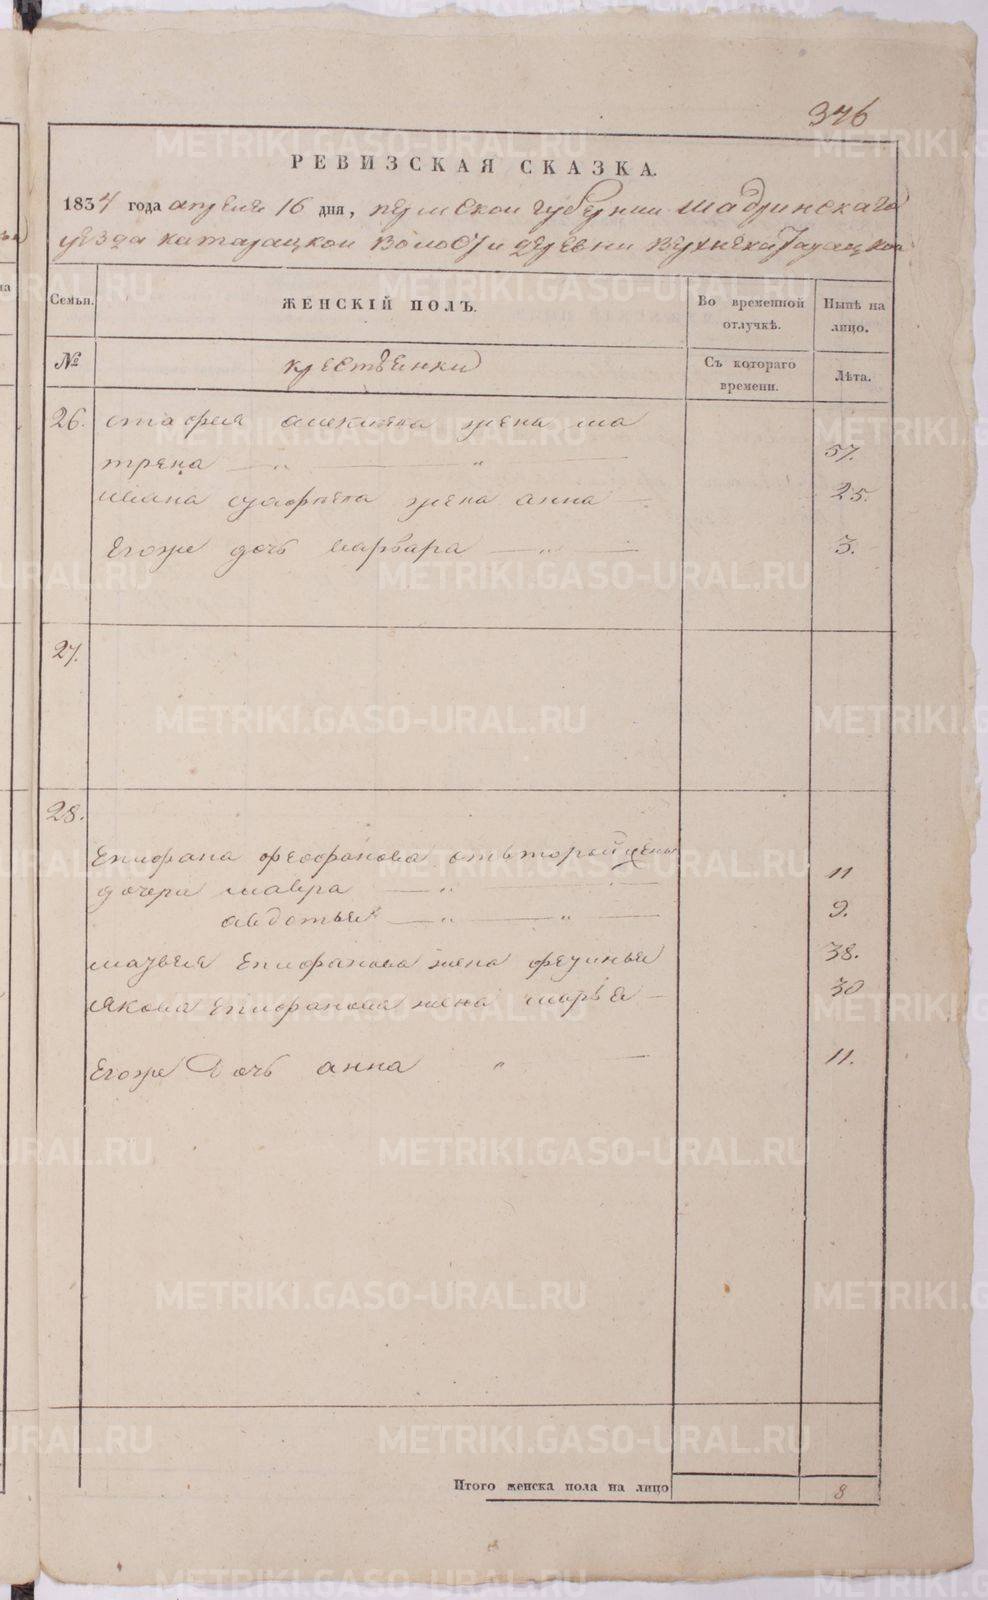 376
РЕВИЗСКАЯ СКАЗКА.
1834 года апреля 16 дня, пермской губернии Шадринскаго
уезда катарацкой волости деревни Верхнекатарацкой
Семьи. ЖЕНСКІЙ ПОЛЪ. Во временной отлучкѣ. Нынѣ на лицо.
№ крестьянки Съ котораго времени. Лѣта.
26. жена ма
трена 57.
ивана жена анна 25.
Егоже дочь варвара 3.
27.
28.
Епифана феофанова отвторой жены
дочери мавра 11
авдотья 9.
Епифанова жена 38.
якова Епифанова жена марья 30
Егоже Дочь анна 11.
Итого женска пола на лицо 8
METRIKI.GASO-URAL.RU